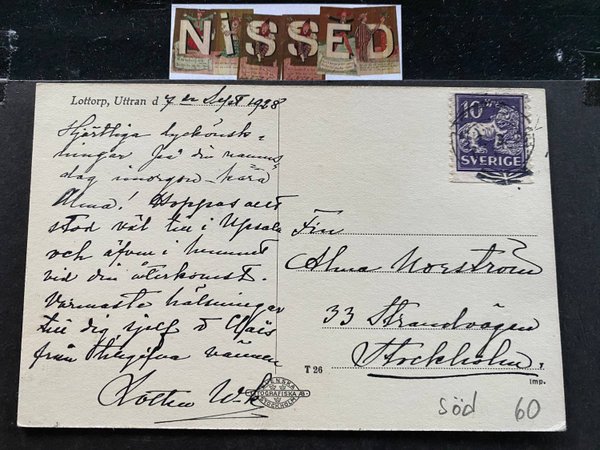 NISSED
Lottorp, Uttran d 7 en Sept 1928
Hjärtliga lyckönsk-
ningar på din namns
dag imorgon kära
Alma! Hoppas allt
stod väl till i Upsala
och äfven i hemmet
vid din återkomst.
Varmaste hälsningar
till dig sjelf o
från vännen
10
SVERIGE
Fru
Alma Norström
33 Strandvägen
Stockholm.
T 26
Imp.
SVENSKA
STOCKHOLM
söd 60